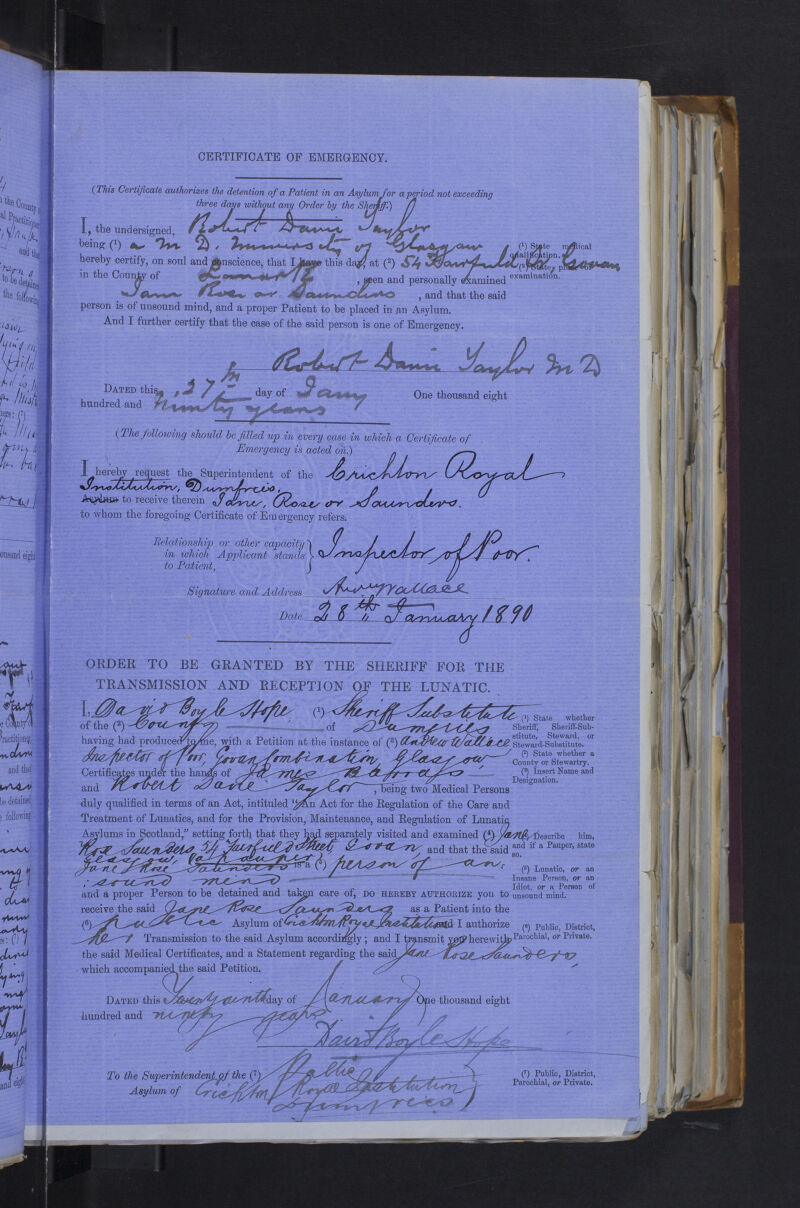 CERTIFICATE OF EMERGENCY.
(This Certificate authorizes the detention of a Patient in an Asylum for a period not exceeding
three days without any Order by the Sheriff.)
I, the undersigned, Robert Davie Taylor
being (¹) a M D. University of Glasgow
(¹) State medical
qualification.
hereby certify, on soul and conscience, that I have this day, at (²) 54 Fairfield St Govan
(²) State place of
examination.
in the County of Lanark, seen and personally examined
Jane Rose or Saunders, and that the said
person is of unsound mind, and a proper Patient to be placed in an Asylum.
And I further certify that the case of the said person is one of Emergency.
Robert Davie Taylor M D
DATED this 27th day of Jany One thousand eight
hundred and ninety years
(The following should be filled up in every case in which a Certificate of
Emergency is acted on.)
I hereby request the Superintendent of the Crichton Royal
Institution, Dumfries.
Asylum to receive therein Jane, Rose or Saunders.
to whom the foregoing Certificate of Emergency refers.
Relationship or other capacity
in which Applicant stands
to Patient,
Inspector of Poor.
Signature and Address Andw Wallace
Date 28th January 1890
ORDER TO BE GRANTED BY THE SHERIFF FOR THE
TRANSMISSION AND RECEPTION OF THE LUNATIC.
I, David Boyle Hope (¹) Sheriff Substitute
of the (²) County of Dumfries
(¹) State whether
Sheriff, Sheriff-Sub-
stitute, Steward, or
Steward-Substitute.
(²) State whether a
County or Stewartry.
(³) Insert Name and
Designation.
having had produced to me, with a Petition at the instance of (³) Andrew Wallace
Inspector of Poor, Govan Combination, Glasgow
Certificates under the hands of James
and Robert Davie Taylor, being two Medical Persons
duly qualified in terms of an Act, intituled "An Act for the Regulation of the Care and
Treatment of Lunatics, and for the Provision, Maintenance, and Regulation of Lunatic
Asylums in Scotland," setting forth that they had separately visited and examined (⁴) Jane
Rose Saunders, 54 Fairfield Street Govan, and that the said
Glasgow, (a pauper)
(⁴) Describe him,
and if a Pauper, state
so.
Jane Rose Saunders is a (⁵) person of un:
:sound mind
(⁵) Lunatic, or an
Insane Person, or an
Idiot, or a Person of
unsound mind.
and a proper Person to be detained and taken care of, DO HEREBY AUTHORIZE you to
receive the said Jane Rose Saunders as a Patient into the
(⁶) Public Asylum of Crichton Royal Institution and I authorize
(⁶) Public, District,
Parochial, or Private.
her Transmission to the said Asylum accordingly; and I transmit you herewith
the said Medical Certificates, and a Statement regarding the said Jane Rose Saunders,
which accompanied the said Petition.
DATED this Twenty ninth day of January One thousand eight
hundred and ninety years
David Boyle Hope
To the Superintendent of the (⁷) Public
Asylum of Crichton Royal Institution
Dumfries
(⁷) Public, District,
Parochial, or Private.